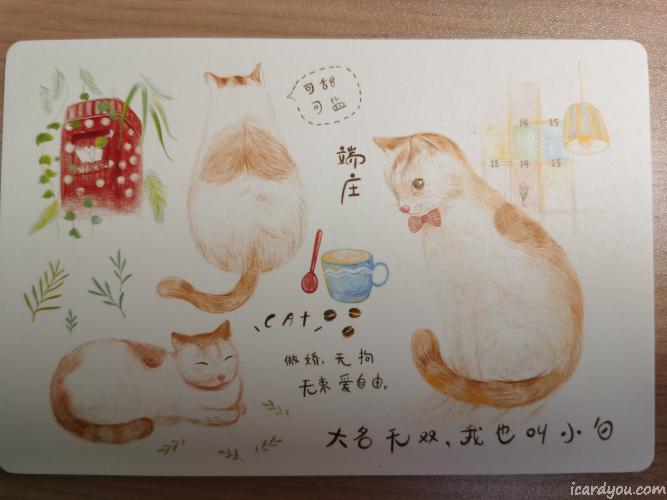 可甜
可盐
端
庄
14 15
15 14 15
CAt
傲娇,无拘
无束爱自由。
大名无双,我也叫小白
icardyou.com